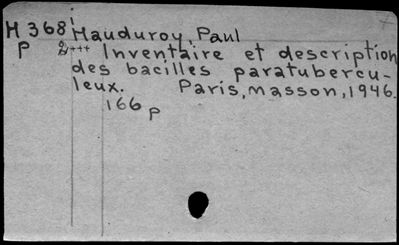 H 368 Hauduroy, Paul
P 2+++ Inventaire et description
des bacilles paratubercu-
leux. Paris, Masson, 1946.
166 p